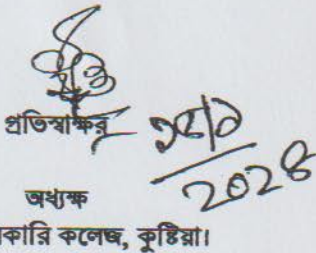 প্রতিস্বাক্ষর
2028
অধ্যক্ষ
কারি কলেজ, কুষ্টিয়া।